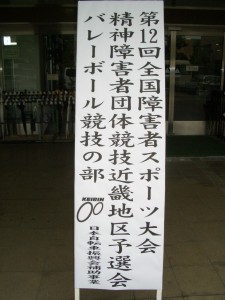 第12回全国障害者スポーツ大会
精神障害者団体競技近畿地区予選会
バレーボール競技の部
KEIRIN
日本自転車振興会補助事業